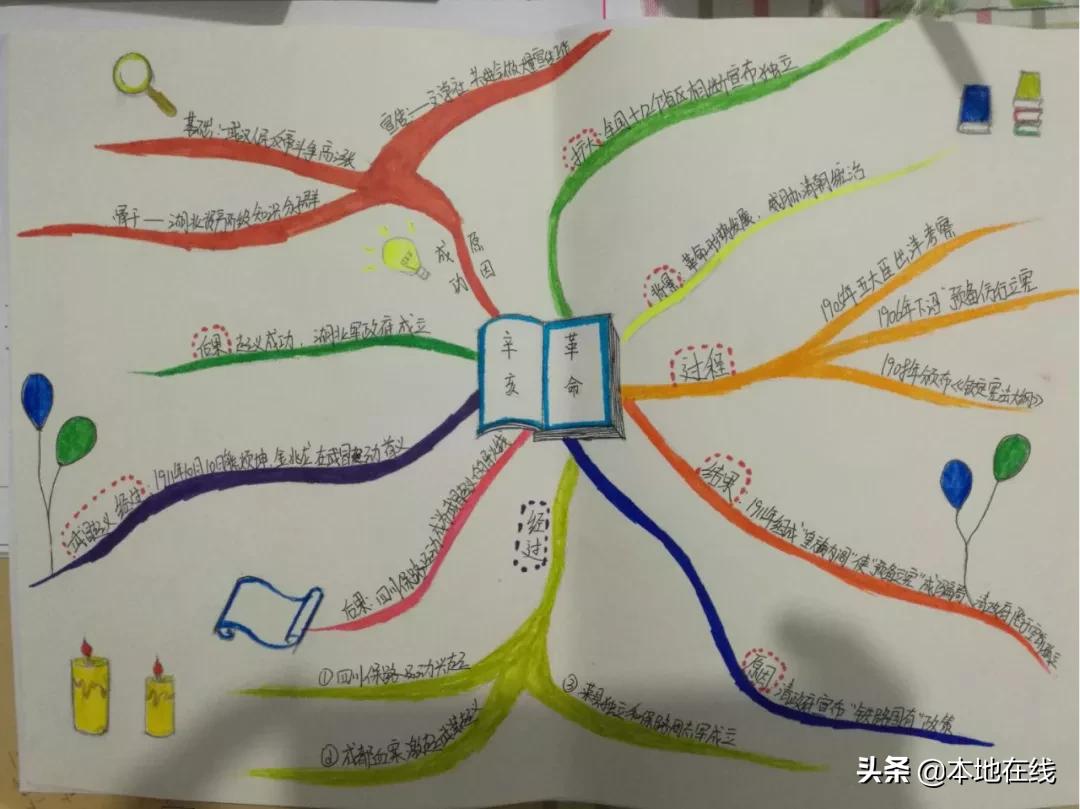 辛亥
革命
成功
原因
宣传
基础
武汉
斗争高涨
骨干——湖北资产阶级知识分子群
扩大:全国十几个省区相继宣布独立
背景:革命形势发展,威胁清朝统治
过程
1905年五大臣出洋考察
1906年下诏"预备仿行立宪"
1908年颁布《钦定宪法大纲》
结果:1911年组成"皇族内阁"使"预备立宪"成
原因:清政府宣布"铁路国有"政策
经过
①四川保路运动兴起
②成都血案,激起武装起义
③荣县独立和保路同志军成立
后果:四川保路运动成为武昌起义的
武昌起义经过:1911年10月10日熊秉坤、金兆龙在武昌发动首义
后果:起义成功,湖北军政府成立
头条 @本地在线